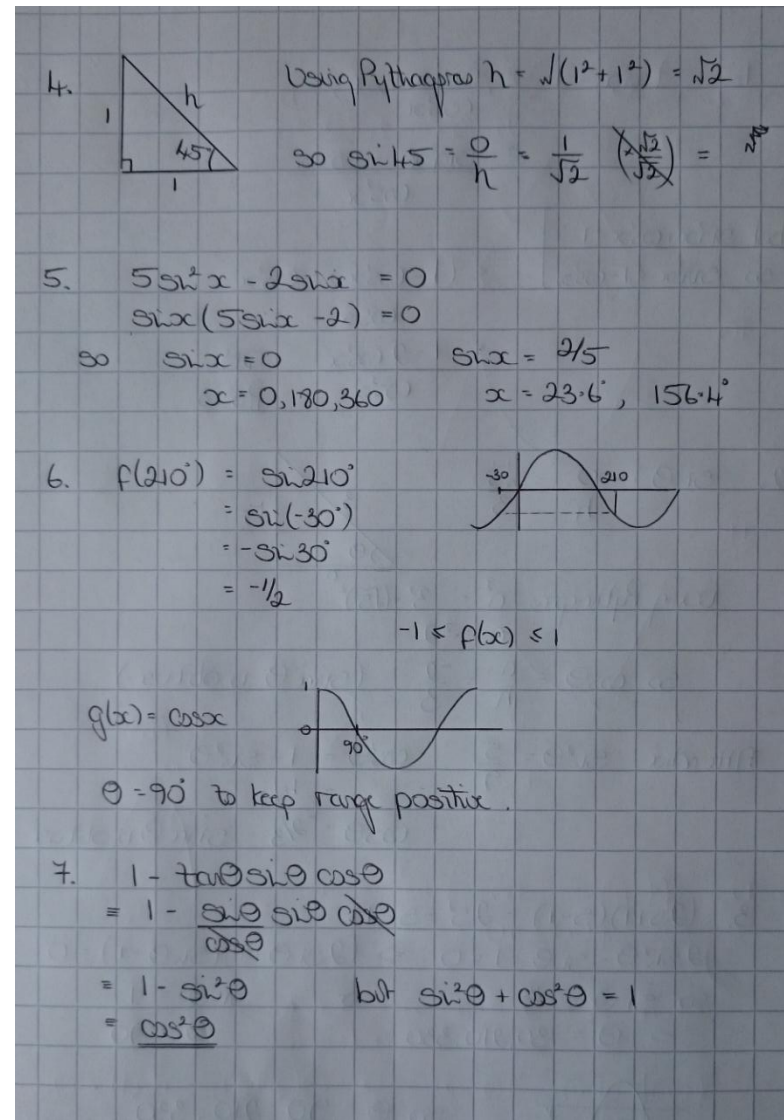 4. 1 h 45° 1 Using Pythagoras h = √(1²+1²) = √2
so sin45 = o/h = 1/√2 (×√2/√2) =
5. 5sin²x - 2sinx = 0
sinx(5sinx - 2) = 0
so sinx = 0 sinx = 2/5
x = 0,180,360 x = 23.6°, 156.4°
6. f(210°) = sin210° -30 210
= sin(-30°)
= -sin30°
= -1/2
-1 ≤ f(x) ≤ 1
g(x) = cosx 1 0 90°
θ = 90° to keep range positive.
7. 1 - tanθ sinθ cosθ
≡ 1 - sinθ/cosθ sinθ cosθ
≡ 1 - sin²θ but sin²θ + cos²θ = 1
= cos²θ